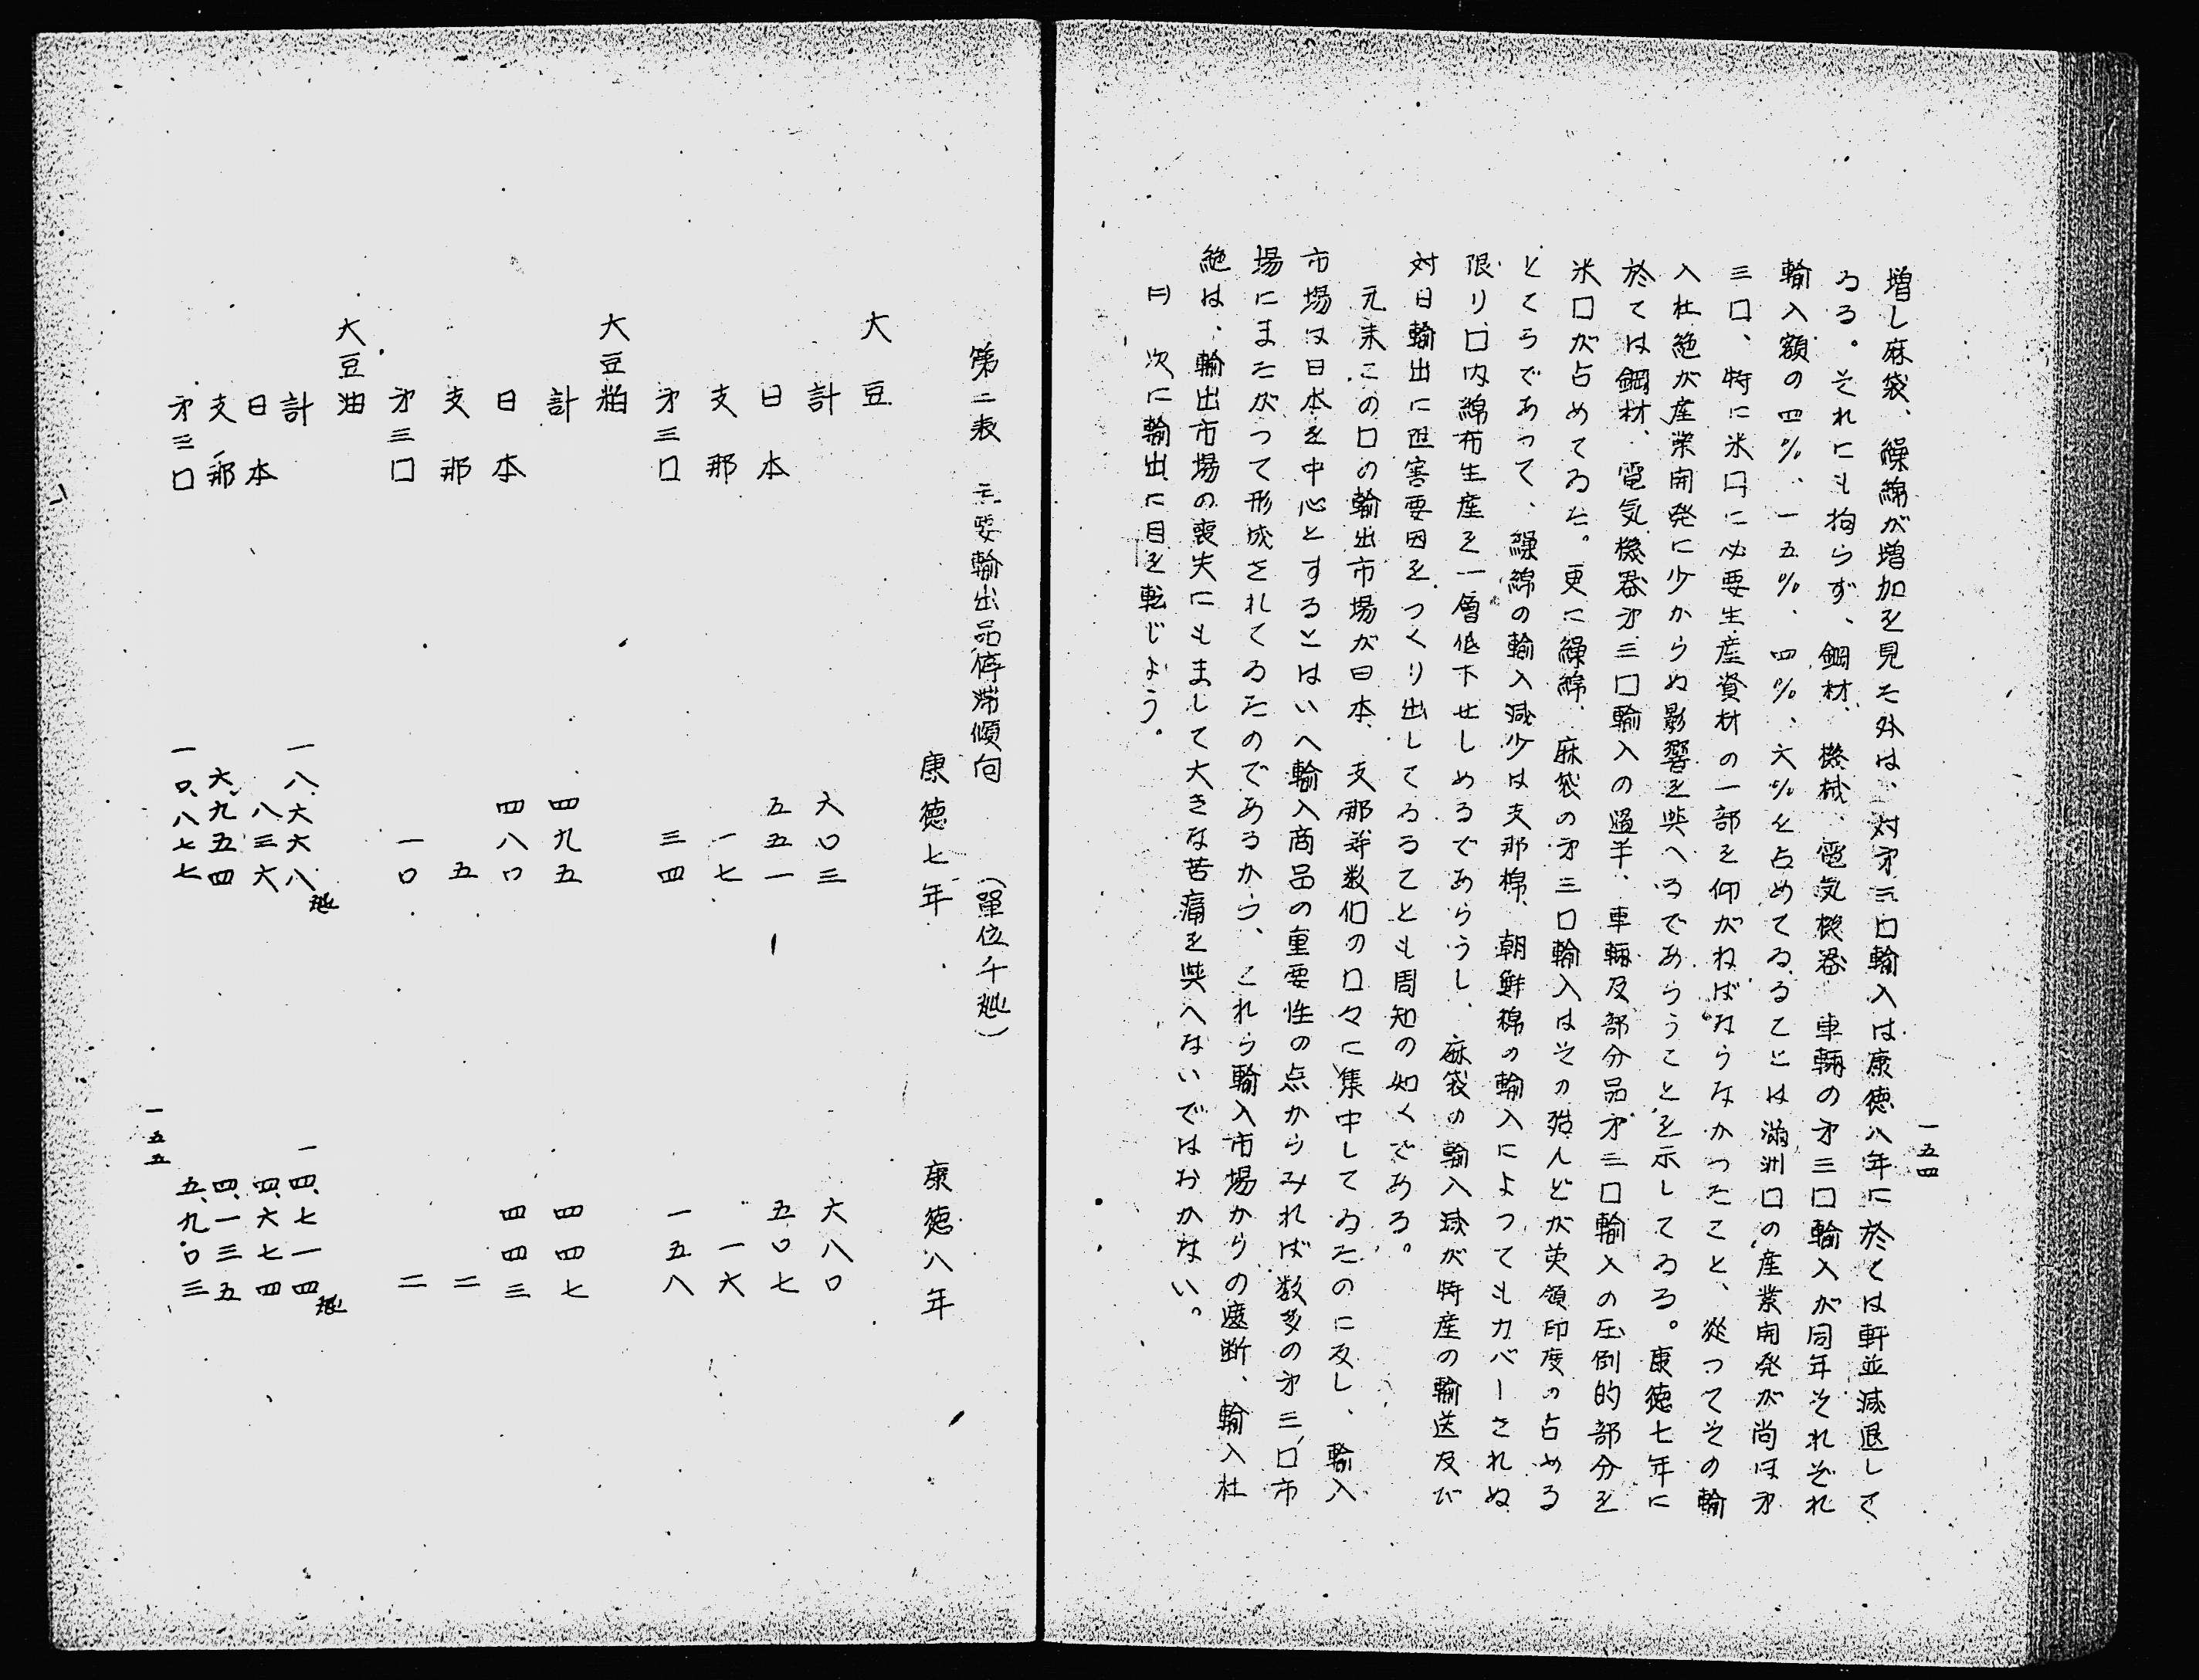 一五四
増し麻袋、繰綿が増加を見た外は、対才三口輸入は康徳八年に於ては軒並減退して
ゐる。それにも拘らず、鋼材、機械、電気機器、車輛の才三口輸入が同年それぞれ
輸入額の四%、一五%、四%、六%を占めてゐることは満洲口の産業開発が尚ほ才
三口、特に米口に必要生産資材の一部を仰がねばならなかつたこと、従つてその輸
入杜絶が産業開発に少からぬ影響を与へるであらうことを示してゐる。康徳七年に
於ては鋼材、電気機器才三口輸入の過半、車輛及部分品才三口輸入の圧倒的部分を
米口が占めてゐた。更に繰綿、麻袋の才三口輸入はその殆んどが英領印度の占める
ところであつて、繰綿の輸入減少は支那棉、朝鮮棉の輸入によつてもカバーされぬ
限り口内綿布生産を一層低下せしめるであらうし、麻袋の輸入減が特産の輸送及び
対日輸出に阻害要因をつくり出してゐることも周知の如くである。
元来この口の輸出市場が日本、支那并数個の口々に集中してゐたのに反し、輸入
市場は日本を中心とするとはいへ輸入商品の重要性の点からみれば数多の才三口市
場にまたがつて形成されてゐたのであるから、これら輸入市場からの遮断、輸入杜
絶は、輸出市場の喪失にもまして大きな苦痛を与へないではおかない。
次に輸出に目を転じよう。
第二表 主要輸出品停滞傾向 (單位千瓲)
康徳七年 康徳八年
大豆
計 六〇三 六八〇
日本 五五一 五〇七
支那 一七 一六
才三口 三四 一五八
大豆粕
計 四九五 四四七
日本 四八〇 四四三
支那 五 二
才三口 一〇 二
大豆油
計 一八、六六八瓲 一四、七一四瓲
日本 八三六 四、六七四
支那 六、九五四 四、一三五
才三口 一〇、八七七 五、九〇三
一五五